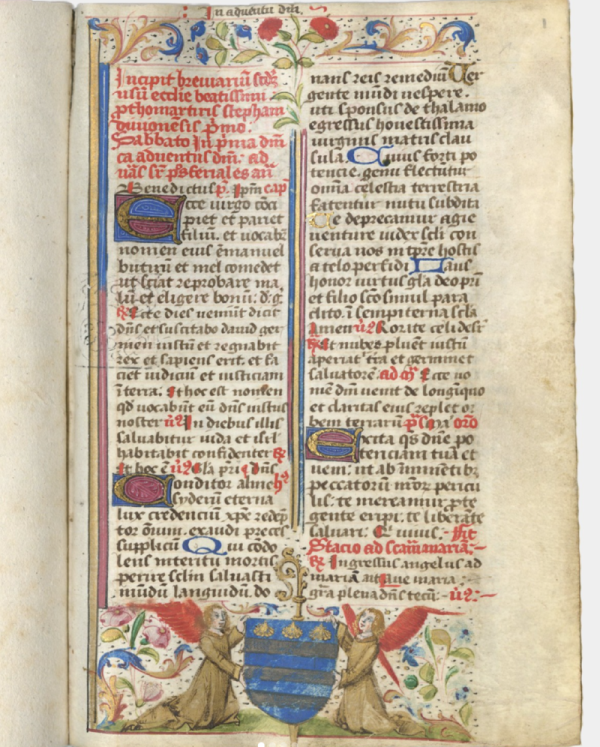 In adventu dni.
Incipit breviariū scdʒ
usū ecclie beatissimi
prothomartiris stephani
divionēsis. Et primo.
Sabbato in prima dnī
ca adventus dni. ad
vās. sr̄ ps feriales añ
Benedictus p. Ipm cap
Ecce virgo cōci
piet et pariet
filiū. et vocabit
nomen eius emanuel
butirū et mel comedet
ut sciat reprobare ma
lū et eligere bonū. d. g.
℟ Ecce dies veniūt dicit
dñs et suscitabo david ger
men iustū et regnabit
rex et sapiens erit. et fa
ciet iudiciū et iusticiam
ī terra. Et hoc est nomen
qd vocabūt eū dñs iustus
noster ℣ In diebus illis
salvabitur iuda et isrl
habitabit confidenter ℟
Et hoc ē
Conditor alme
syderum eterna
lux credenciū xpe redēp
tor oīum. exaudi preces
supplicū Qui cōdo
lens interitu mortis
perire seclm salvasti
mūdū languidū. do
nans reis remediū Ver
gente mūdi vespere.
uti sponsus de thalamo
egressus honestissima
virginis matris clau
sula. Cuius forti po
tencie. genu flectūtur
omīa celestia terrestria
fatentur nutu subdita
Te deprecamur agie
venture iudex secli con
serva nos in tpre hostis
a telo perfidi Laus
honor virtus gla deo pri
et filio scō simul para
clito. ī sempiterna scla
Amen ℣ Rorate celi desr
℟ Et nubes pluent iustū
aperiatʳ tra et germinet
salvatorē. ad m̄ Ecce no
mē dnī venit de longīquo
et claritas eius replet or
bem terrarū ps Ma oro
Excita qs dñe po
tenciam tuā et
veni: ut ab īminētib
peccatorū nr̄or pericu
lis: te mereamur prote
gente eripi. te liberāte
salvari. Qui vivis.
Stacio ad scam mariā.
℟ Ingressus angelus ad
mariā ait ave maria
gra plena dñs tecū. ℣